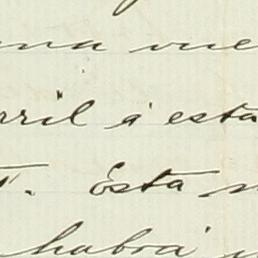 una vue
rril á esta
T. Esta
habrá